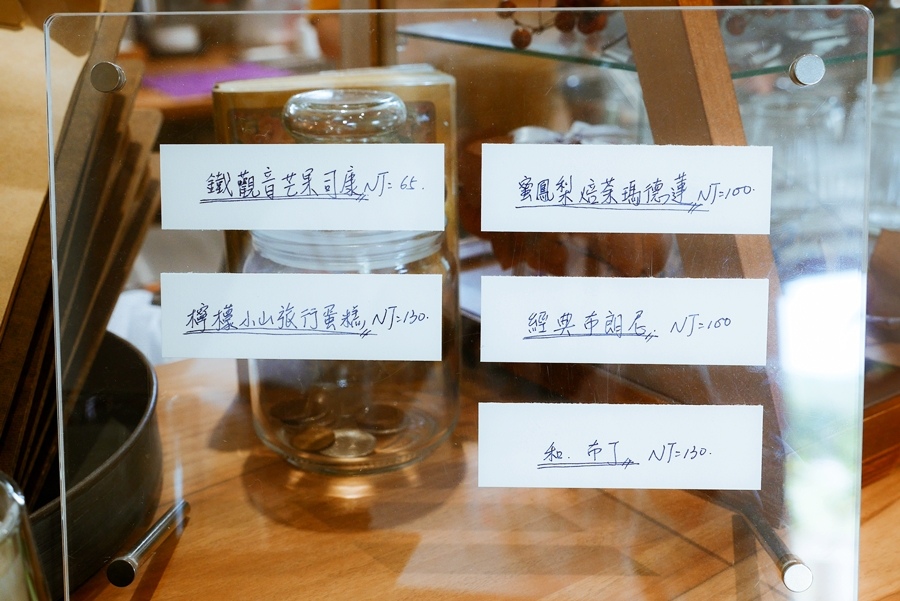 鐵觀音芒果司康 NT=65.
檸檬小山旅行蛋糕 NT=130.
蜜鳳梨焙茶瑪德蓮 NT=100.
經典布朗尼. NT=100
和.布丁 NT=130.